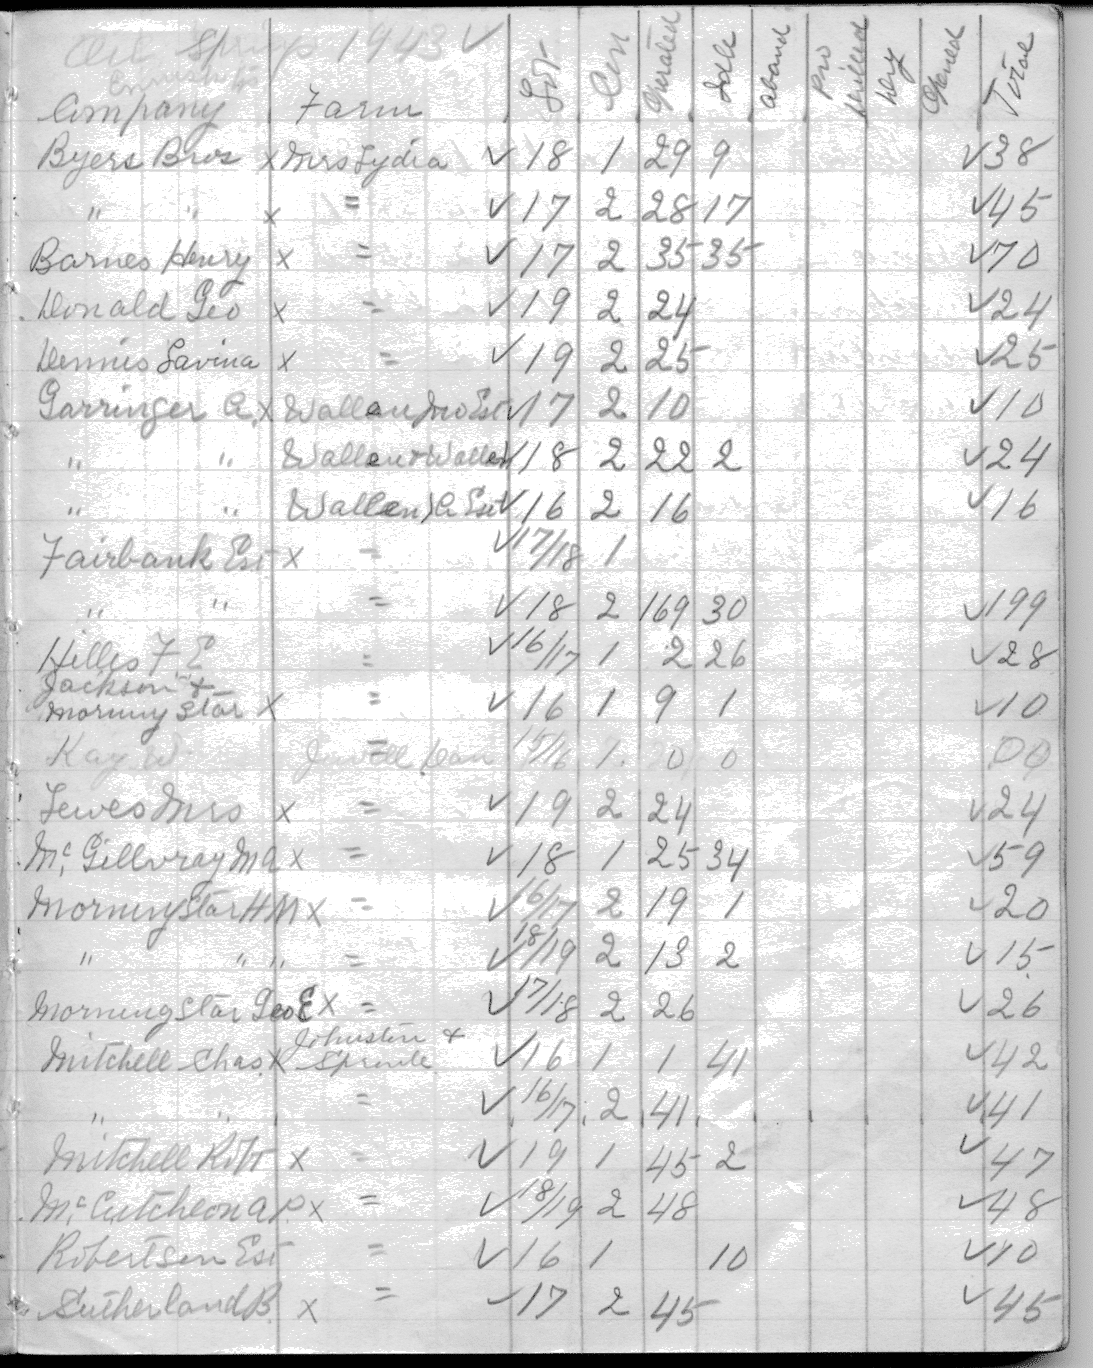 Oil Springs 1943 ✓
Company Farm Lot Con Operated Idle aband pro drilled dry Opened Total
Byers Bros x Mrs Lydia ✓ 18 1 29 9 ✓38
" " x = ✓ 17 2 28 17 ✓45
Barnes Henry x = ✓ 17 2 35 35 ✓70
Donald Geo x = ✓ 19 2 24 ✓24
Dennis Lavina x = ✓ 19 2 25 ✓25
Garringer A. x Wallen Est ✓17 2 10 ✓10
" " Wallen & Wallen ✓18 2 22 2 ✓24
" " Wallen A Est ✓16 2 16 ✓16
Fairbank Est x = ✓17/18 1
" " = ✓ 18 2 169 30 ✓199
Hillis F E = ✓16/17 1 2 26 ✓28
Jackson &
Morningstar x = ✓ 16 1 9 1 ✓10
Kay W = Dan 15/16 1 0 0 00
Lewes Mrs x = ✓ 19 2 24 ✓24
Mc Gillvray M A x = ✓ 18 1 25 34 ✓59
Morningstar H M x = ✓16/17 2 19 1 ✓20
" " " = ✓18/19 2 13 2 ✓15
Morningstar Geo E x = ✓17/18 2 26 ✓26
Mitchell Chas. x Johnston & Sproule ✓16 1 1 41 ✓42
" " = ✓16/17 2 41 ✓41
Mitchell Robt x = ✓ 19 1 45 2 ✓47
Mc Cutcheon A P. x = ✓18/19 2 48 ✓48
Robertson Est = ✓ 16 1 10 ✓10
Sutherland B. x = ✓17 2 45 ✓45